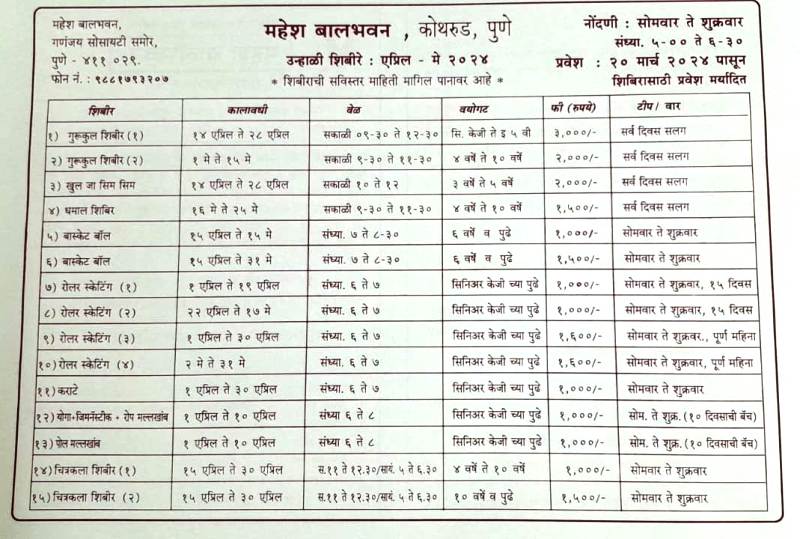 महेश बालभवन,
गणंजय सोसायटी समोर,
पुणे - ४११ ०२९.
फोन नं. : ९८८१७९३२०७
महेश बालभवन , कोथरुड, पुणे
उन्हाळी शिबीरे : एप्रिल - मे २०२४
* शिबीराची सविस्तर माहिती मागिल पानावर आहे *
नोंदणी : सोमवार ते शुक्रवार
संध्या. ५-०० ते ६-३०
प्रवेश : २० मार्च २०२४ पासून
शिबिरासाठी प्रवेश मर्यादित
शिबीर कालावधी वेळ वयोगट फी (रुपये) टीप/ वार
१) गुरूकुल शिबीर (१) १४ एप्रिल ते २८ एप्रिल सकाळी ०९-३० ते १२-३० सि. केजी ते इ ५ वी ३,०००/- सर्व दिवस सलग
२) गुरूकुल शिबीर (२) १ मे ते १५ मे सकाळी ९-३० ते ११-३० ४ वर्षे ते १० वर्षे २,०००/- सर्व दिवस सलग
३) खुल जा सिम सिम १४ एप्रिल ते २८ एप्रिल सकाळी १० ते १२ ३ वर्षे ते ५ वर्षे २,०००/- सर्व दिवस सलग
४) धमाल शिबिर १६ मे ते २५ मे सकाळी ९-३० ते ११-३० ४ वर्षे ते १० वर्षे १,५००/- सर्व दिवस सलग
५) बास्केट बॉल १५ एप्रिल ते १५ मे संध्या. ७ ते ८-३० ६ वर्षे व पुढे १,०००/- सोमवार ते शुक्रवार
६) बास्केट बॉल १५ एप्रिल ते ३१ मे संध्या. ७ ते ८-३० ६ वर्षे व पुढे १,५००/- सोमवार ते शुक्रवार
७) रोलर स्केटिंग (१) १ एप्रिल ते १९ एप्रिल संध्या. ६ ते ७ सिनिअर केजी च्या पुढे १,०००/- सोमवार ते शुक्रवार, १५ दिवस
८) रोलर स्केटिंग (२) २२ एप्रिल ते १७ मे संध्या. ६ ते ७ सिनिअर केजी च्या पुढे १,०००/- सोमवार ते शुक्रवार, १५ दिवस
९) रोलर स्केटिंग (३) १ एप्रिल ते ३० एप्रिल संध्या. ६ ते ७ सिनिअर केजी च्या पुढे १,६००/- सोमवार ते शुक्रवर., पूर्ण महिना
१०) रोलर स्केटिंग (४) २ मे ते ३१ मे संध्या. ६ ते ७ सिनिअर केजी च्या पुढे १,६००/- सोमवार ते शुक्रवार, पूर्ण महिना
११) कराटे १ एप्रिल ते ३० एप्रिल संध्या. ६ ते ७ सिनिअर केजी च्या पुढे १,०००/- सोमवार ते शुक्रवार
१२) योगा+जिमनॅस्टीक + रोप मल्लखांब १ एप्रिल ते १० एप्रिल संध्या ६ ते ८ सिनिअर केजी च्या पुढे १,०००/- सोम. ते शुक्र.(१० दिवसाची बॅच)
१३) पोल मल्लखांब १ एप्रिल ते १० एप्रिल संध्या ६ ते ८ सिनिअर केजी च्या पुढे १,०००/- सोम. ते शुक्र.(१० दिवसाची बॅच)
१४) चित्रकला शिबीर (१) १५ एप्रिल ते ३० एप्रिल स.११ ते १२.३०/सायं. ५ ते ६.३० ४ वर्षे ते १० वर्षे १,०००/- सोमवार ते शुक्रवार
१५) चित्रकला शिबीर (२) १५ एप्रिल ते ३० एप्रिल स.११ ते १२.३०/सायं. ५ ते ६.३० १० वर्षे व पुढे १,५००/- सोमवार ते शुक्रवार